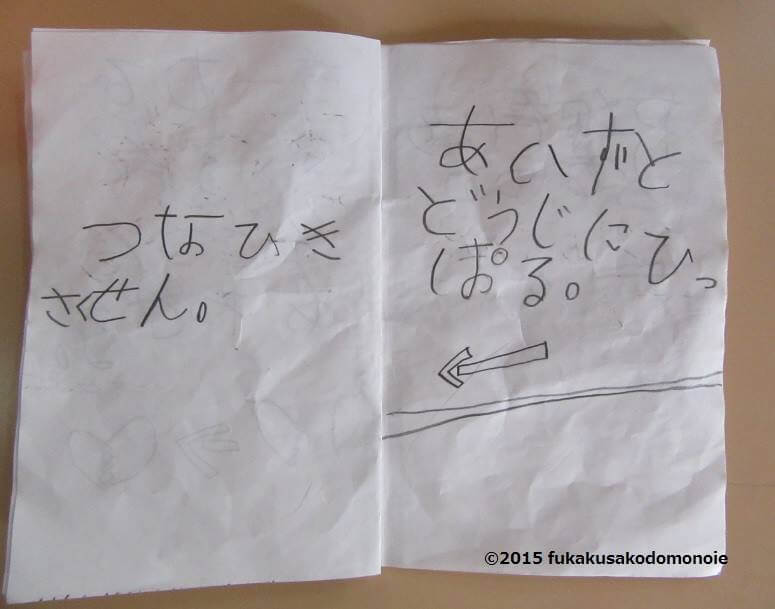 つなひき
さくせん。
あいずと
どうじにひっ
ぱる。
©2015 fukakusakodomonoie